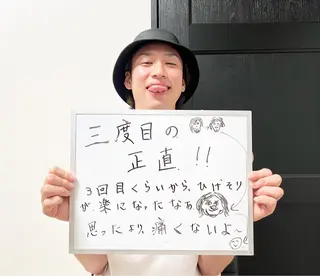 三度目の
正直!!
3回目くらいから、ひげそり
が、楽になったなぁ
思ったより、痛くないよ〜